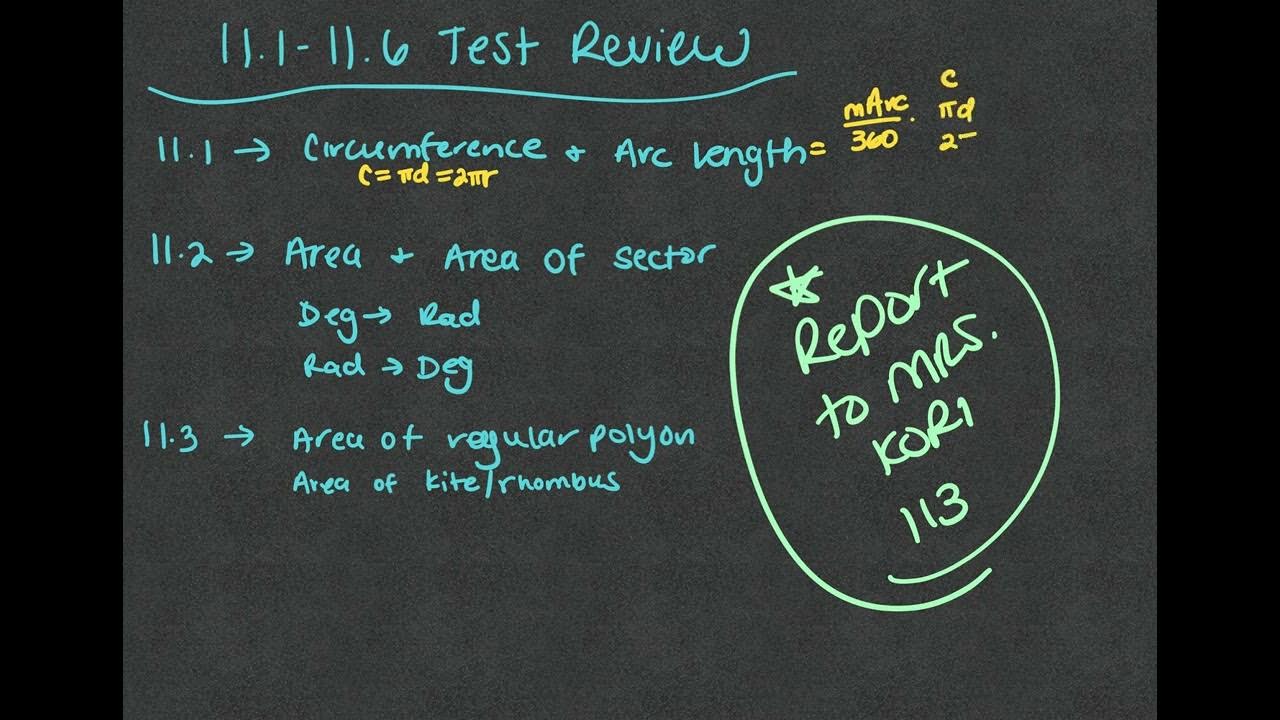 11.1-11.6 Test Review
11.1 → Circumference + Arc Length = mArc/360 · C
πd
2
C = πd = 2πr
11.2 → Area + Area of sector
Deg → Rad
Rad → Deg
11.3 → Area of regular polyon
Area of kite/rhombus
☆
Report
to MRS.
KORI
113